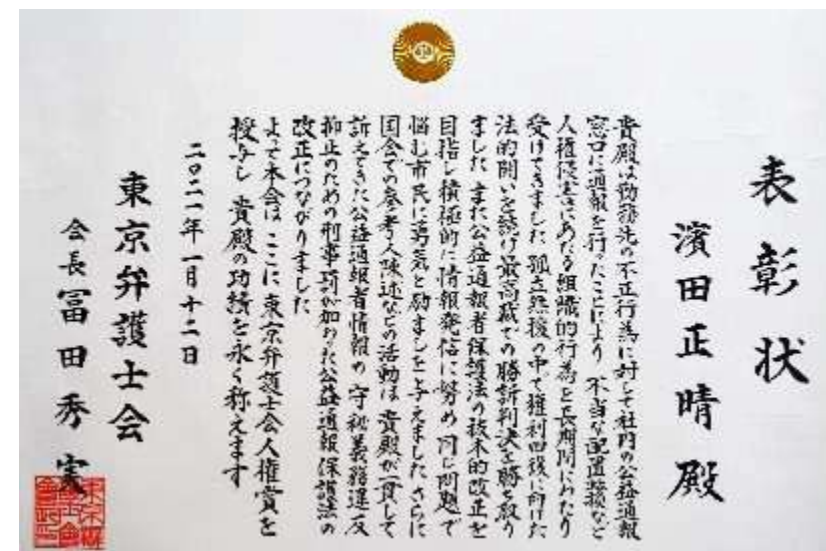 表彰状
濱田正晴殿
貴殿は勤務先の不正行為に対して社内の公益通報
窓口に通報を行ったことにより 不当な配置転換など
人権侵害にあたる組織的行為を長期間にわたり
受けてきました 孤立無援の中で権利回復に向けた
法的闘いを続け最高裁での勝訴判決を勝ち取り
ました また公益通報者保護法の抜本的改正を
目指し積極的に情報発信に努め 同じ問題で
悩む市民に勇気と励ましを与えました さらに
国会での参考人陳述などの活動は 貴殿が一貫して
訴えてきた公益通報者情報の 守秘義務違反
抑止のための刑事罰が加わった公益通報保護法の
改正につながりました
よって本会は ここに 東京弁護士会人権賞を
授与し 貴殿の功績を永く称えます
二〇二一年一月十二日
東京弁護士会
会長 冨田秀実